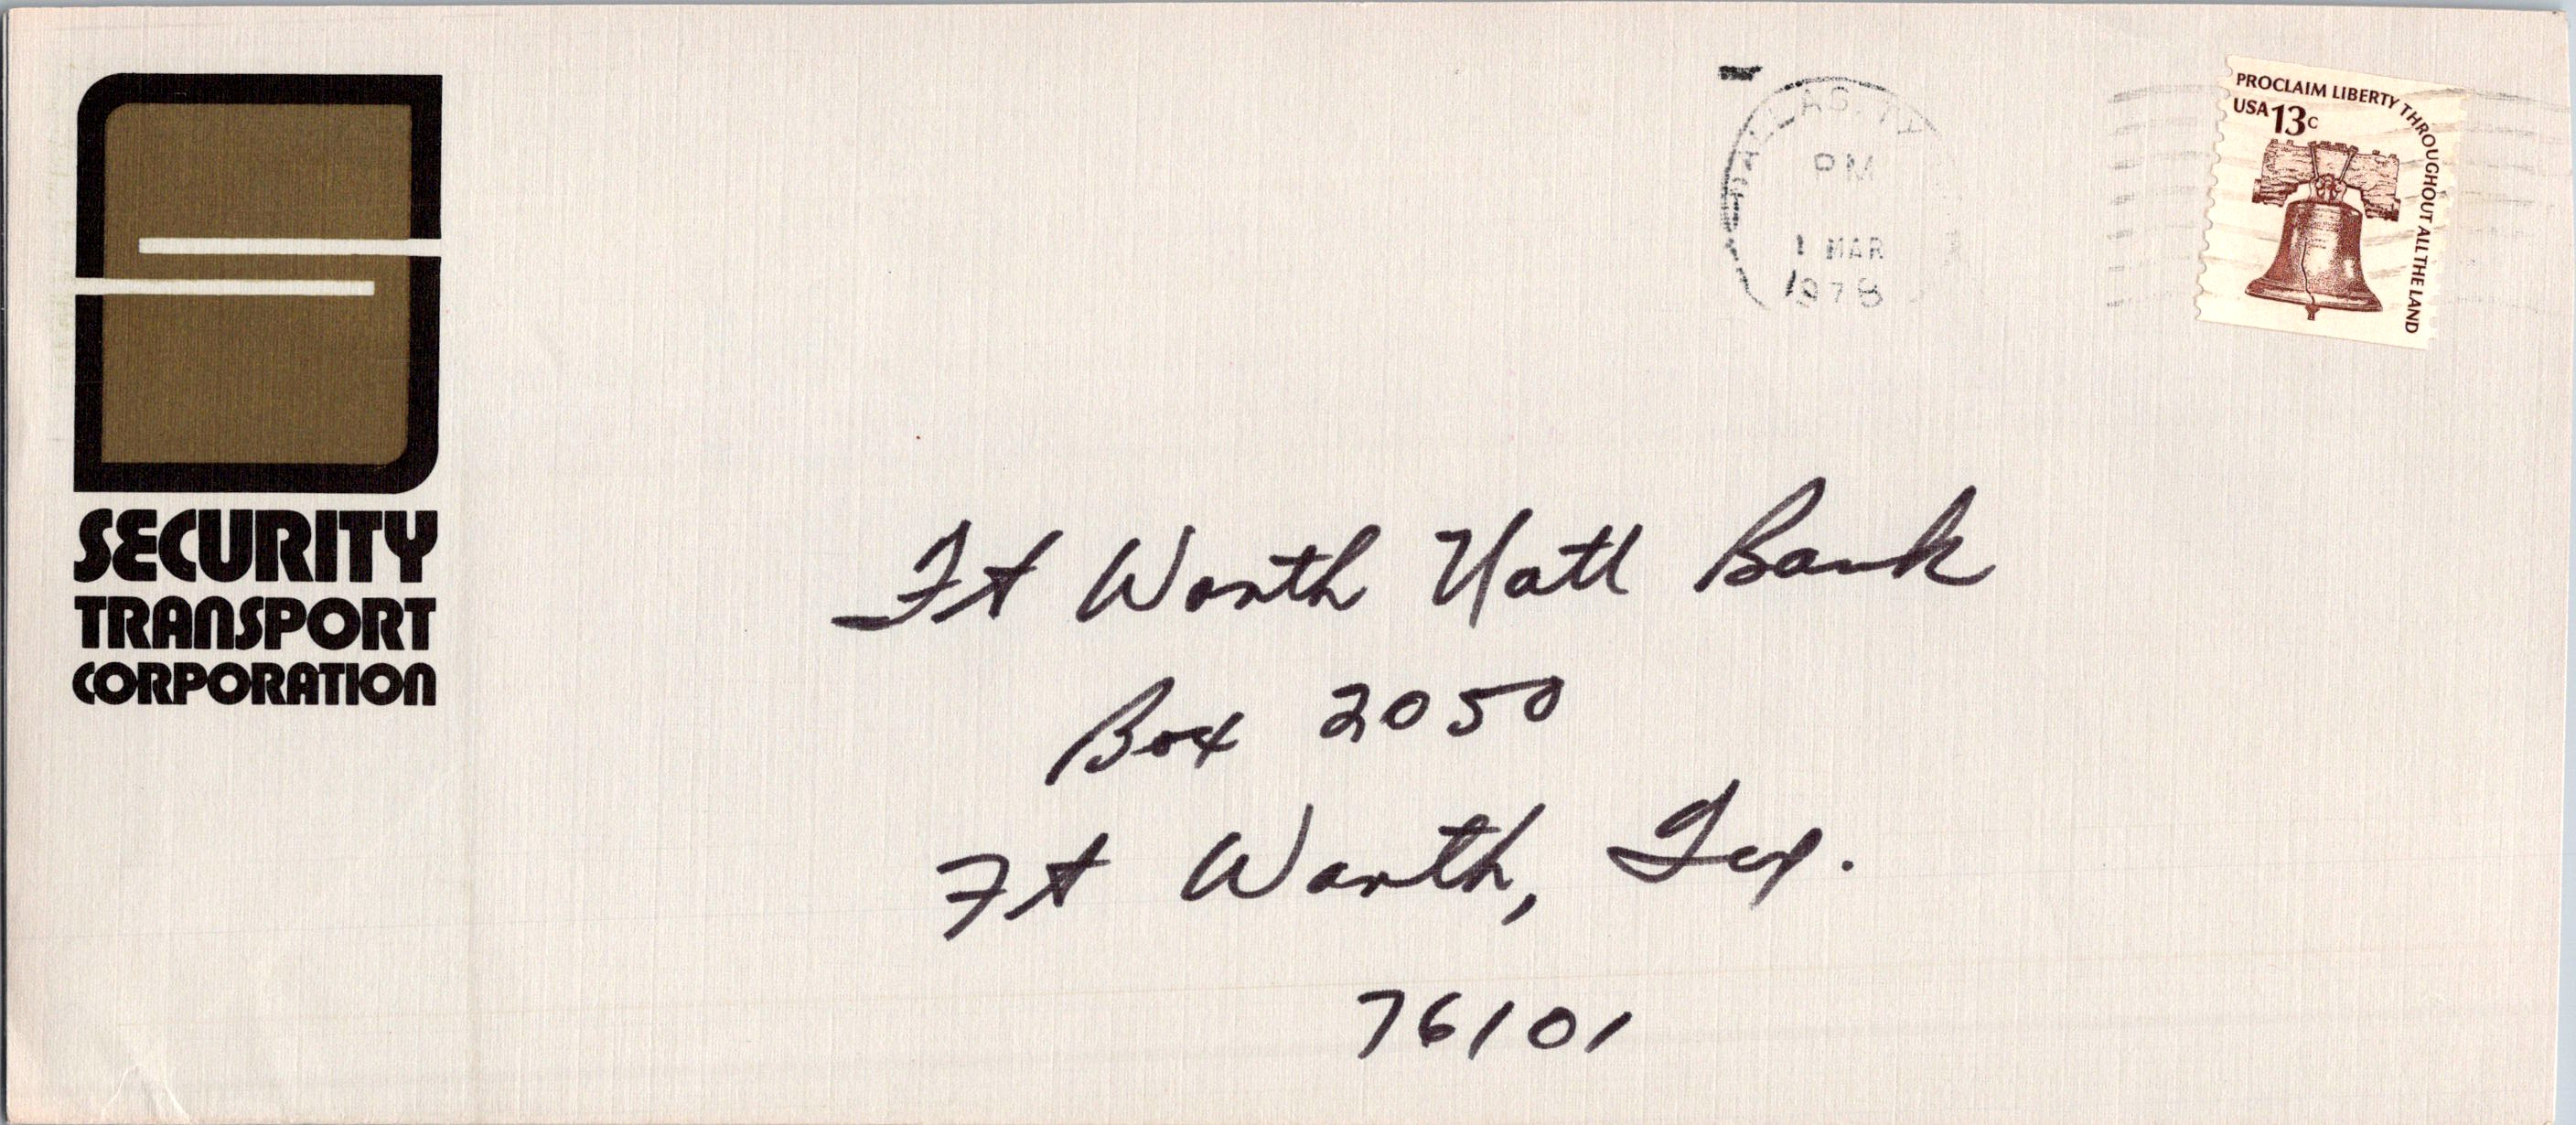 SECURITY
TRANSPORT
CORPORATION
DALLAS, TX
PM
1 MAR
1978
PROCLAIM LIBERTY THROUGHOUT ALL THE LAND
USA 13c
Ft Worth Natl Bank
Box 2050
Ft Worth, Tex.
76101